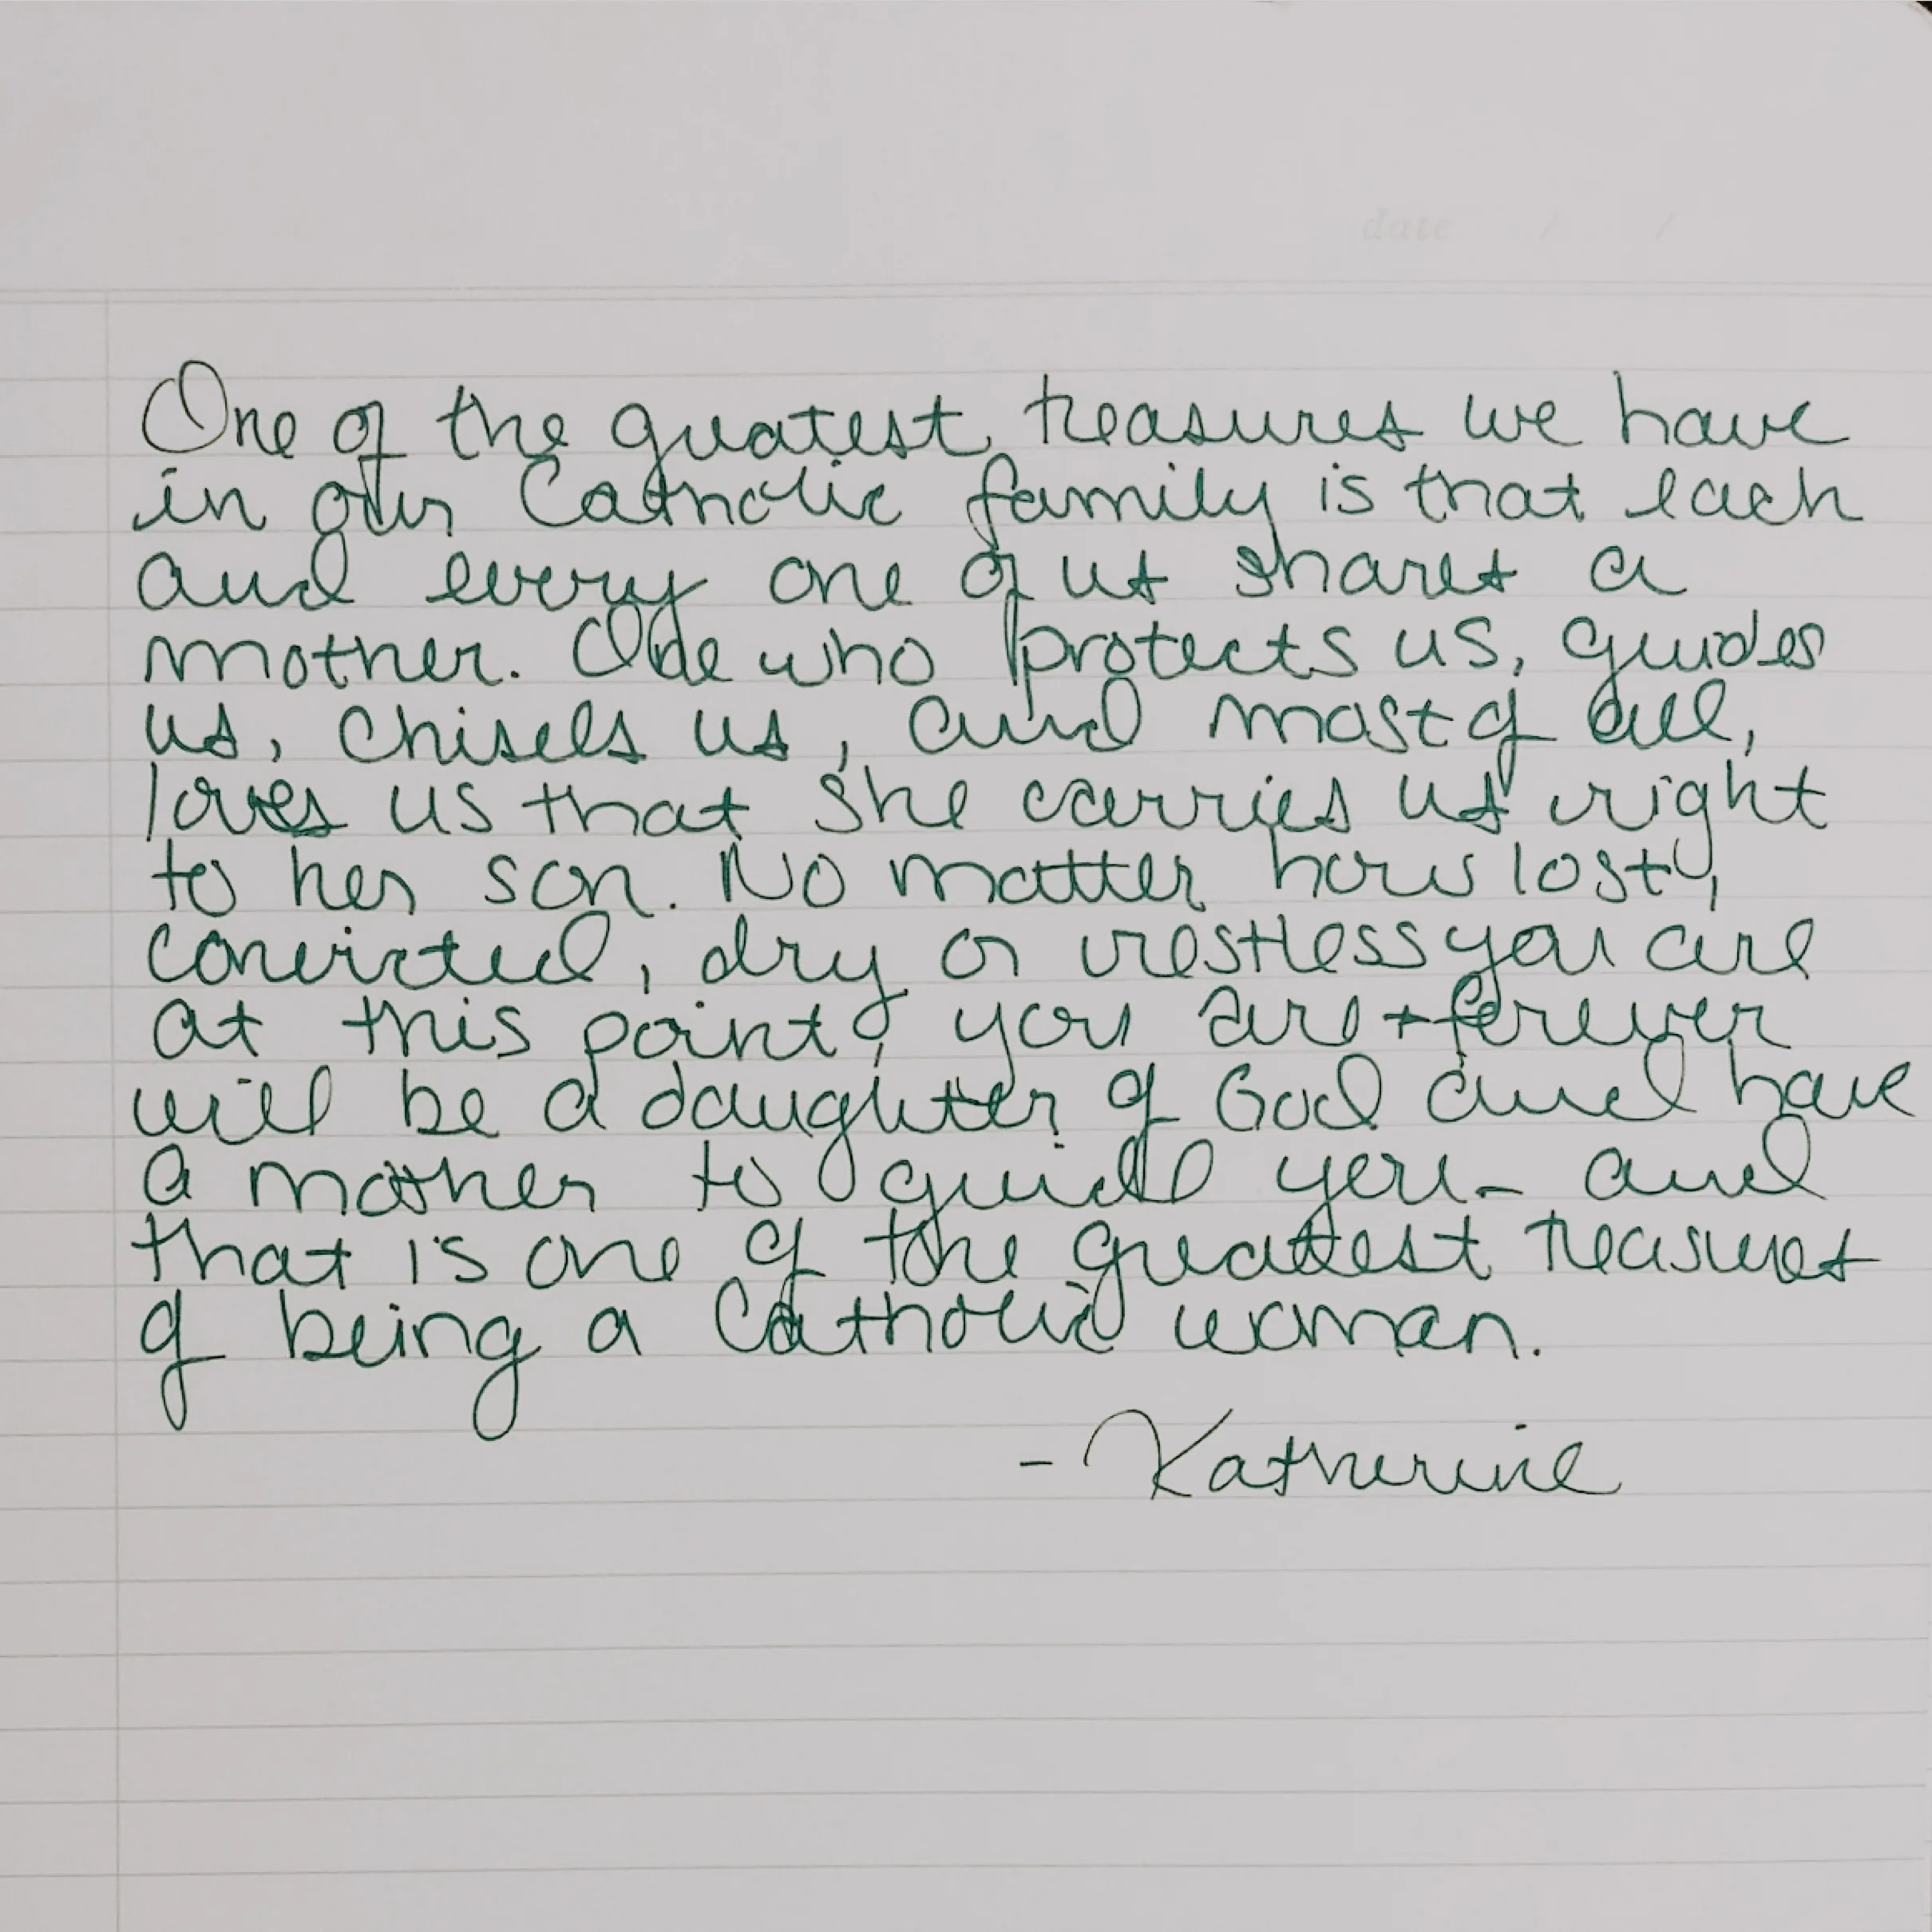 date / /
One of the greatest treasures we have
in our Catholic family is that each
and every one of us shares a
mother. One who protects us, guides
us, chisels us, and most of all,
loves us that she carries us right
to her son. No matter how lost,
convicted, dry or restless you are
at this point, you are + forever
will be a daughter of God and have
a mother to guide you - and
that is one of the greatest treasures
of being a Catholic woman.
- Katherine